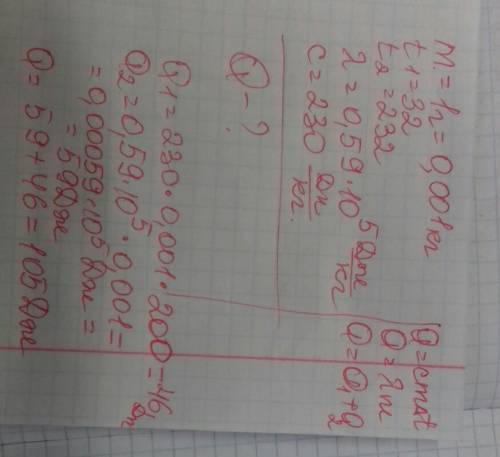 m = 1г = 0,001 кг
t1 = 32
t2 = 232
λ = 0,59·10⁵ Дж/кг
c = 230 Дж/кг.
Q - ?
Q = cmΔt
Q = λm
Q = Q1 + Q2
Q1 = 230·0,001·200 = 46 Дж
Q2 = 0,59·10⁵·0,001 =
= 0,00059·10⁵ Дж =
= 59 Дж
Q = 59 + 46 = 105 Дж